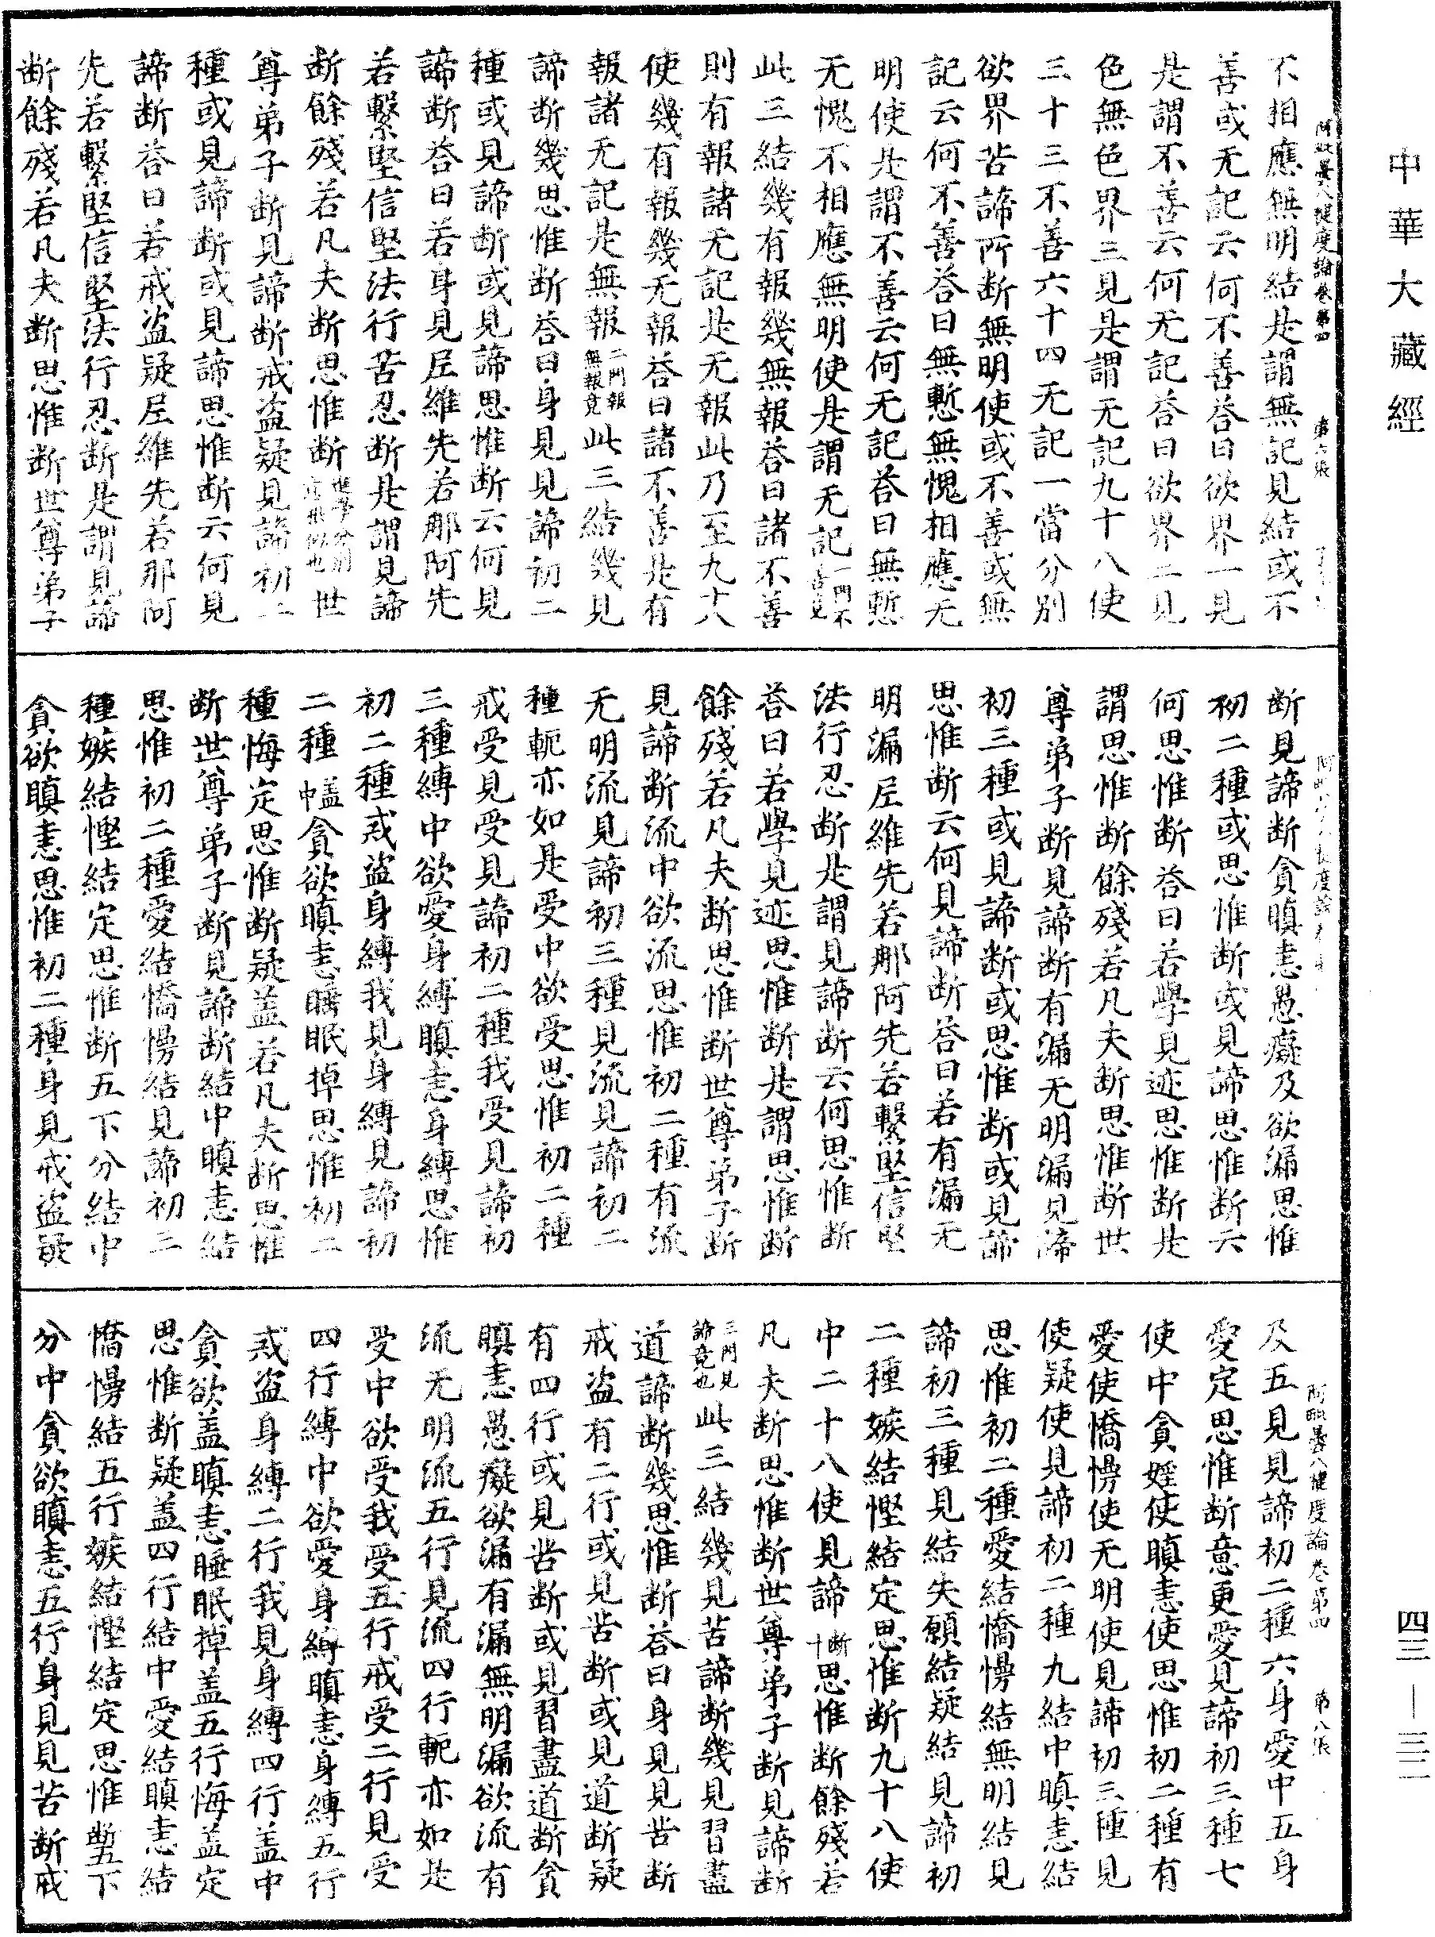 中華大藏經
四三—三二
阿毗曇八犍度論卷第四
第六張
不相應無明結是謂無記見結或不
善或无記云何不善荅曰欲界一見
是謂不善云何无記荅曰欲界二見
色無色界三見是謂无記九十八使
三十三不善六十四无記一當分別
欲界苦諦所斷無明使或不善或無
記云何不善荅曰無慙無愧相應无
明使是謂不善云何无記荅曰無慙
无愧不相應無明使是謂无記一門不
此三結幾有報幾無報荅曰諸不善
則有報諸无記是无報此乃至九十八
使幾有報幾无報荅曰諸不善是有
報諸无記是無報二門報無報竟此三結幾見
諦斷幾思惟斷荅曰身見見諦初二
種或見諦斷或見諦思惟斷云何見
諦斷荅曰若身見𡰱維先若那阿先
若繫堅信堅法行苦忍斷是謂見諦
斷餘殘若凡夫斷思惟斷世
尊弟子斷見諦斷戒盜疑見諦初二
種或見諦斷或見諦思惟斷云何見
諦斷荅曰若戒盜疑𡰱維先若那阿
先若繫堅信堅法行忍斷是謂見諦
斷餘殘若凡夫斷思惟斷世尊弟子
斷見諦斷貪瞋恚愚癡及欲漏思惟
初二種或思惟斷或見諦思惟斷云
何思惟斷荅曰若學見迹思惟斷是
謂思惟斷餘殘若凡夫斷思惟斷世
尊弟子斷見諦斷有漏无明漏見諦
初三種或見諦斷或思惟斷或見諦
思惟斷云何見諦斷荅曰若有漏无
明漏𡰱維先若那阿先若繫堅信堅
法行忍斷是謂見諦斷云何思惟斷
荅曰若學見迹思惟斷是謂思惟斷
餘殘若凡夫斷思惟斷世尊弟子斷
見諦斷流中欲流思惟初二種有流
无明流見諦初三種見流見諦初二
種軛亦如是受中欲受思惟初二種
戒受見受見諦初二種我受見諦初
三種縛中欲愛身縛瞋恚身縛思惟
初二種戒盜身縛我見身縛見諦初
二種盖中貪欲瞋恚睡眠掉思惟初二
種悔定思惟斷疑盖若凡夫斷思惟
斷世尊弟子斷見諦斷結中瞋恚結
思惟初二種愛結憍慢結見諦初三
種嫉結慳結定思惟斷五下分結中
貪欲瞋恚思惟初二種身見戒盜疑
阿毗曇八犍度論卷第四
第八張
及五見見諦初二種六身愛中五身
愛定思惟斷意更愛見諦初三種七
使中貪婬使瞋恚使思惟初二種有
愛使憍慢使无明使見諦初三種見
使疑使見諦初二種九結中瞋恚結
思惟初二種愛結憍慢結無明結見
諦初三種見結失願結疑結見諦初
二種嫉結慳結定思惟斷九十八使
中二十八使見諦斷十思惟斷餘殘若
凡夫斷思惟斷世尊弟子斷見諦斷
三門見諦竟也此三結幾見苦諦斷幾見習盡
道諦斷幾思惟斷荅曰身見見苦斷
戒盜有二行或見苦斷或見道斷疑
有四行或見苦斷或見習盡道斷貪
瞋恚愚癡欲漏有漏無明漏欲流有
流无明流五行見流四行軛亦如是
受中欲受我受五行戒受二行見受
四行縛中欲愛身縛瞋恚身縛五行
戒盜身縛二行我見身縛四行盖中
貪欲盖瞋恚睡眠掉盖五行悔盖定
思惟斷疑盖四行結中愛結瞋恚結
憍慢結五行嫉結慳結定思惟斷五下
分中貪欲瞋恚五行身見見苦斷戒